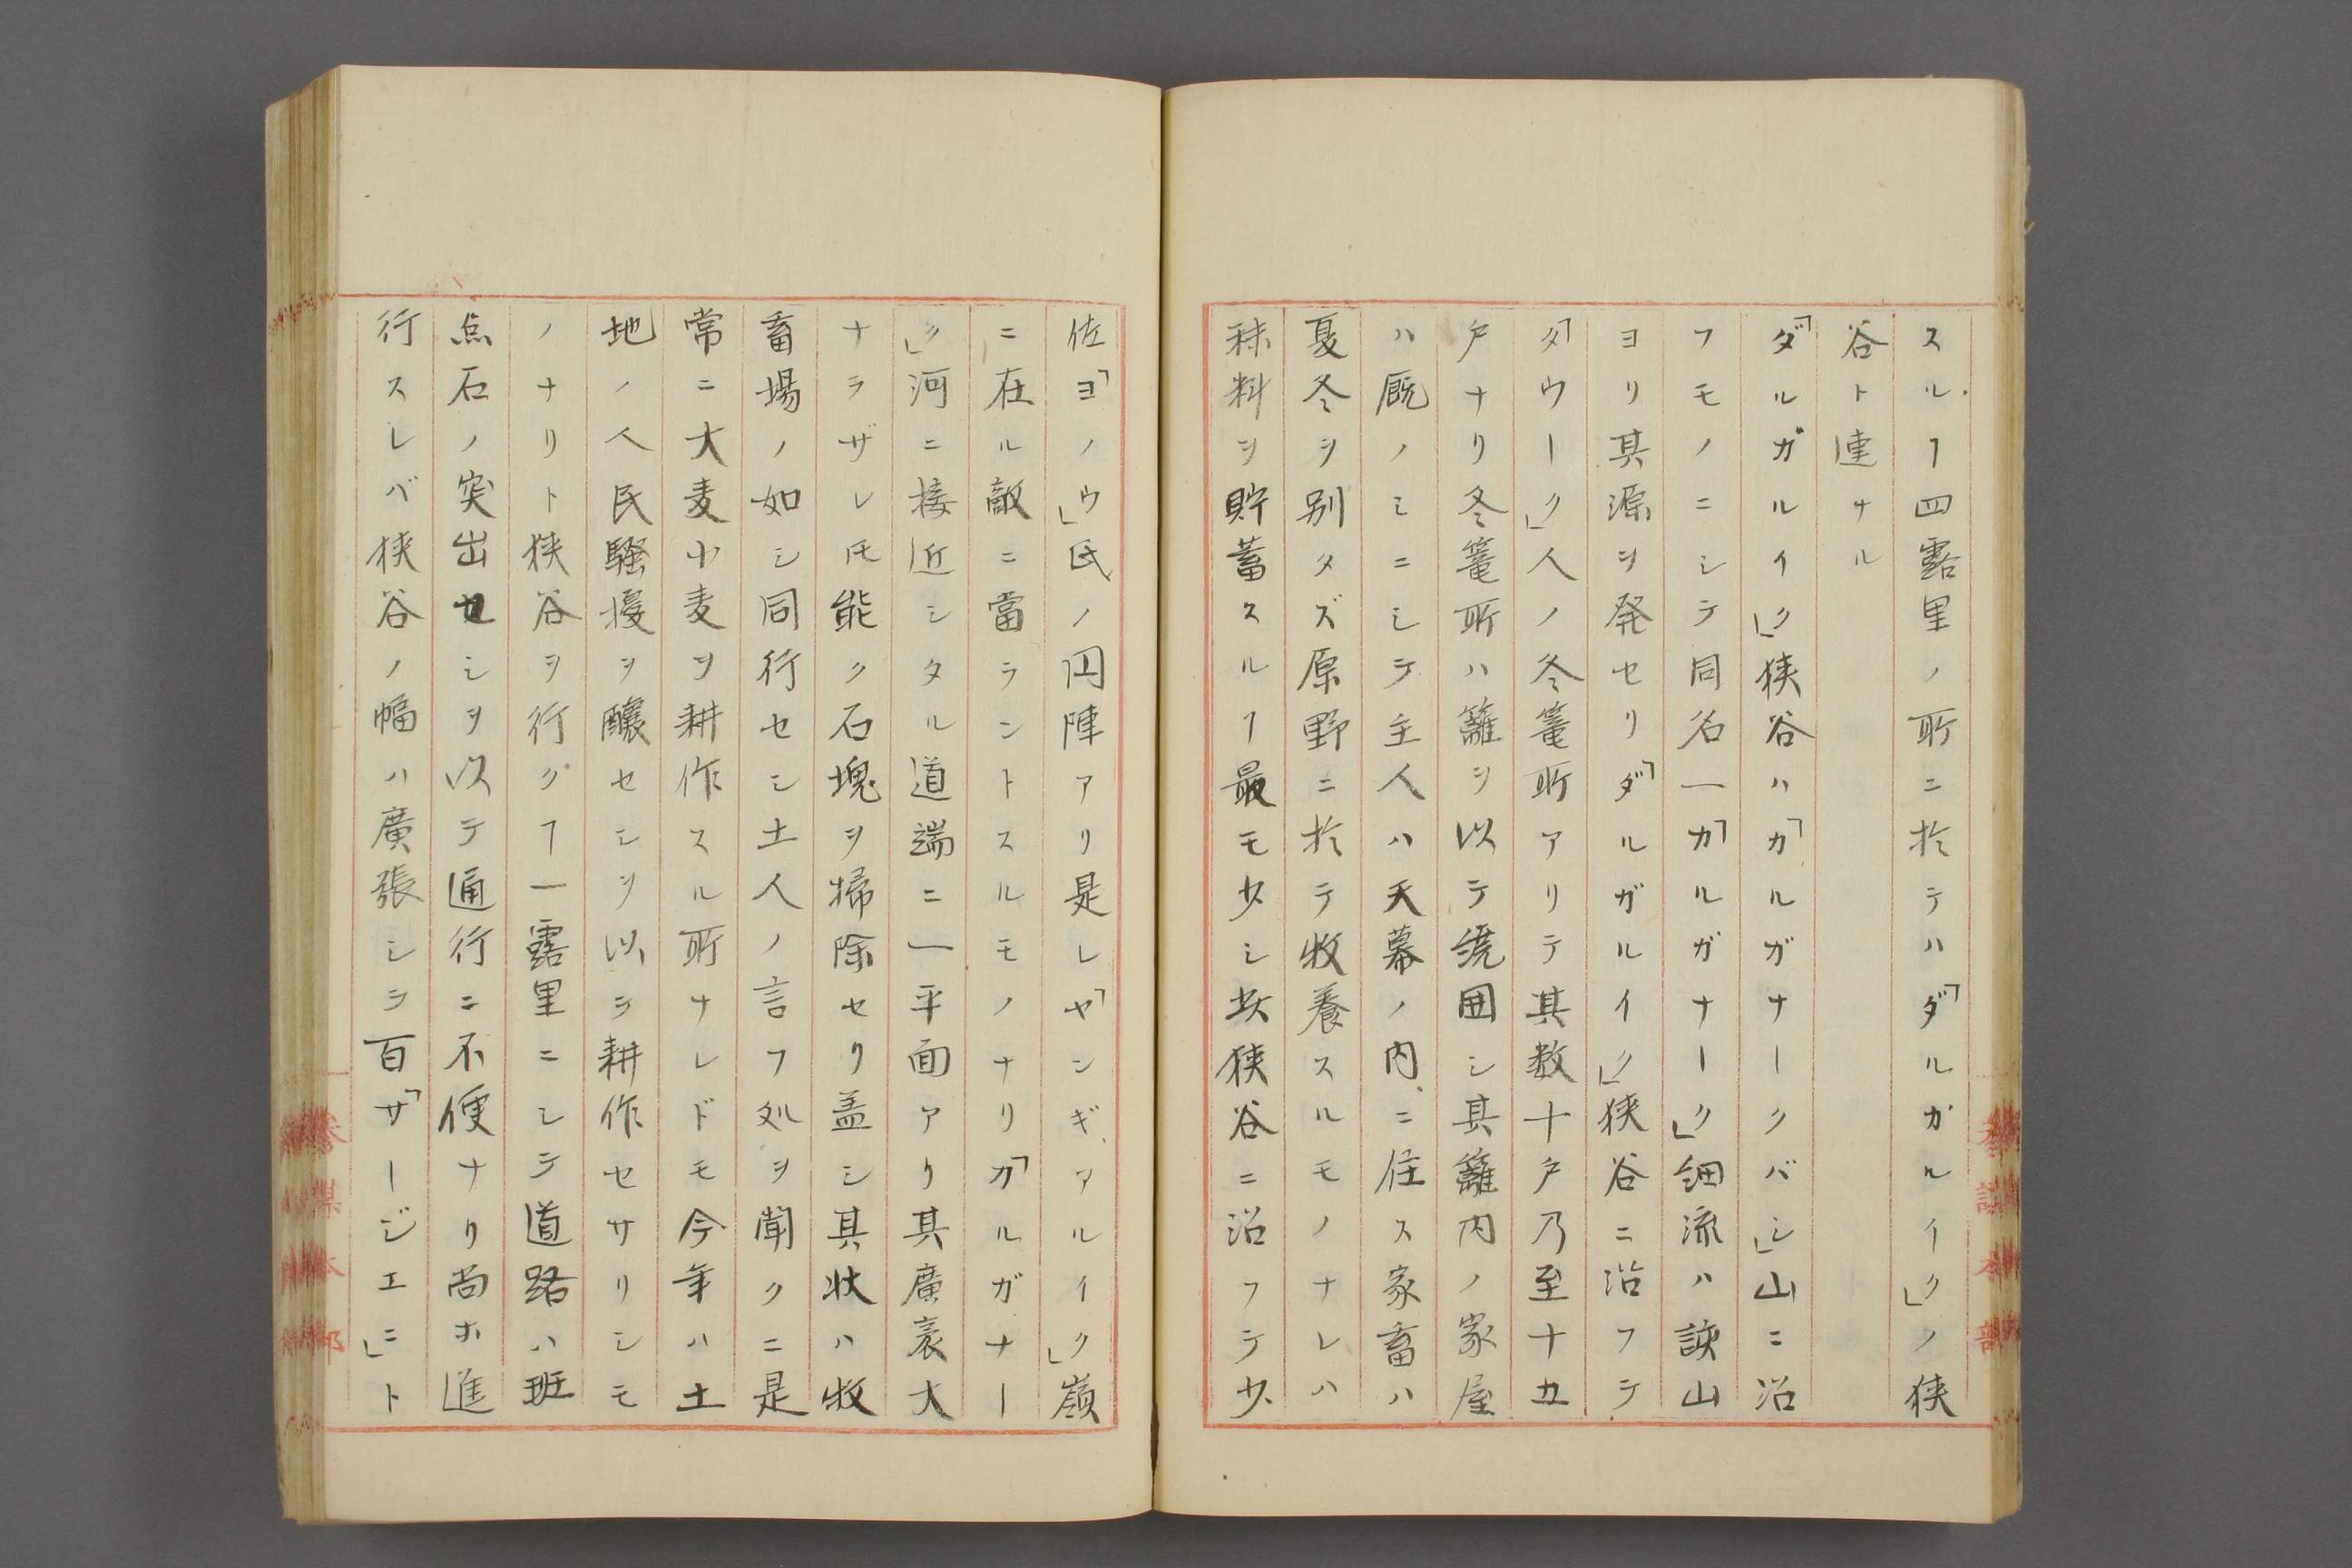 スルヿ四露里ノ所ニ於テハ「ダルガルイク」ノ狭
谷ト連ナル
「ダルガルイク」狭谷ハ「カルガナークバシ」山ニ沿
フモノニシテ同名一「カルガナーク」細流ハ該山
ヨリ其源ヲ発セリ「ダルガルイク」狭谷ニ沿フテ
「タウーク」人ノ冬篭所アリテ其数十戸乃至十五
戸ナリ冬篭所ハ籬ヲ以テ繞囲シ其籬内ノ家屋
ハ厩ノミニシテ主人ハ天幕ノ内ニ住ス家畜ハ
夏冬ヲ別タズ原野ニ於テ牧養スルモノナレハ
秣料ヲ貯蓄スルヿ最モ少シ此狭谷ニ沿フテ少
佐「ヨノウ」氏ノ円陣アリ是レ「ヤンギアルイク」嶺
ニ在ル敵ニ當ラントスルモノナリ「カルガナー
ク」河ニ接近シタル道端ニ一平面アリ其廣袤大
ナラザレ𪜈能ク石塊ヲ掃除セリ盖シ其状ハ牧
畜場ノ如シ同行セシ土人ノ言フ処ヲ聞クニ是
常ニ大麦小麦ヲ耕作スル所ナレドモ今年ハ土
地ノ人民騒擾ヲ醸セシヲ以テ耕作セサリシモ
ノナリト狭谷ヲ行クヿ一露里ニシテ道路ハ班
点石ノ突出セシヲ以テ通行ニ不便ナリ尚ホ進
行スレバ狭谷ノ幅ハ廣張シテ百「サージエニ」ト
参謀本部
参謀本部